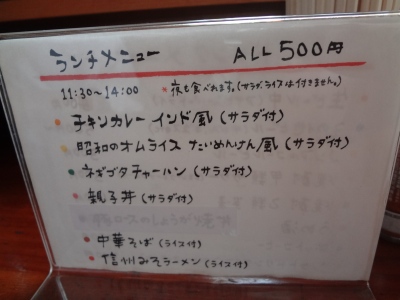 ランチメニュー ALL 500円
11:30~14:00 *夜も食べれます。(サラダ、ライスは付きません。)
• チキンカレー インド風 (サラダ付)
• 昭和のオムライス たいめんけん風 (サラダ付)
• ネギゴタチャーハン (サラダ付)
• 親子丼 (サラダ付)
• 中華そば (ライス付)
• 信州みそラーメン (ライス付)